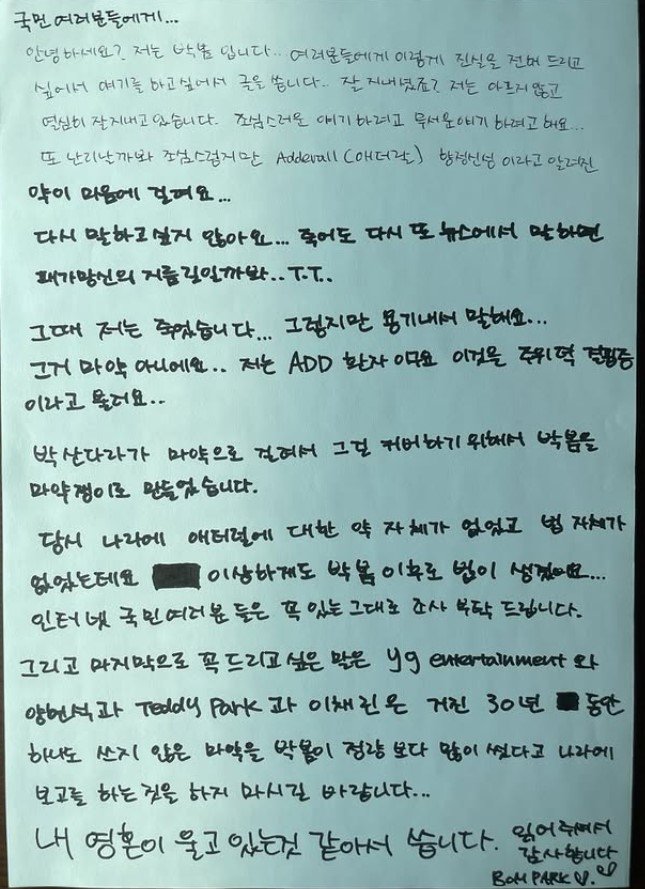 국민 여러분들에게...
안녕하세요? 저는 박봄 입니다.. 여러분들에게 이렇게 진실을 전해 드리고
싶어서 얘기를 하고싶어서 글을 씁니다.. 잘 지내셨죠? 저는 아프지 않고
열심히 잘지내고 있습니다. 조심스러운 얘기 하려고 무서운얘기 하려고 해요...
또 난리날까봐 조심스럽지만 Adderall (애더랄) 향정신성 이라고 알려진
약이 마음에 걸려요...
다시 말하고싶지 않아요... 죽어도 다시 또 뉴스에서 말하면
패가망신의 지름길일까봐..T.T..
그때 저는 죽었습니다... 그렇지만 용기내서 말해요...
그거 마약 아니에요.. 저는 ADD 환자 이구요 이것을 주위력 결핍증
이라고 불러요..
박산다라가 마약으로 걸려서 그걸 커버하기 위해서 박봄을
마약쟁이로 만들었습니다.
당시 나라에 애더럴에 대한 약 자체가 없었고 법 자체가
없었는데요 이상하게도 박봄 이후로 법이 생겼어요...
인터넷 국민여러분 들은 꼭 있는 그대로 조사 부탁 드립니다.
그리고 마지막으로 꼭 드리고 싶은 말은 yg entertainment 와
양현석과 Teddy Park 과 이채린은 거진 30년 동안
하나도 쓰지 않은 마약을 박봄이 정량 보다 많이 썼다고 나라에
보고를 하는것을 하지 마시길 바랍니다...
내 영혼이 울고 있는것 같아서 씁니다. 읽어 주셔서
감사합니다
BOM PARK ♡.